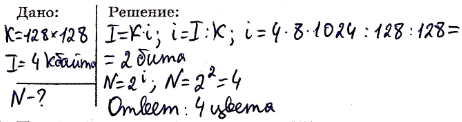 Дано: Решение:
K=128×128 I=K·i; i=I:K; i=4·8·1024:128:128=
I=4 Кбайта =2 бита
N=2^i; N=2²=4
N-? Ответ: 4 цвета